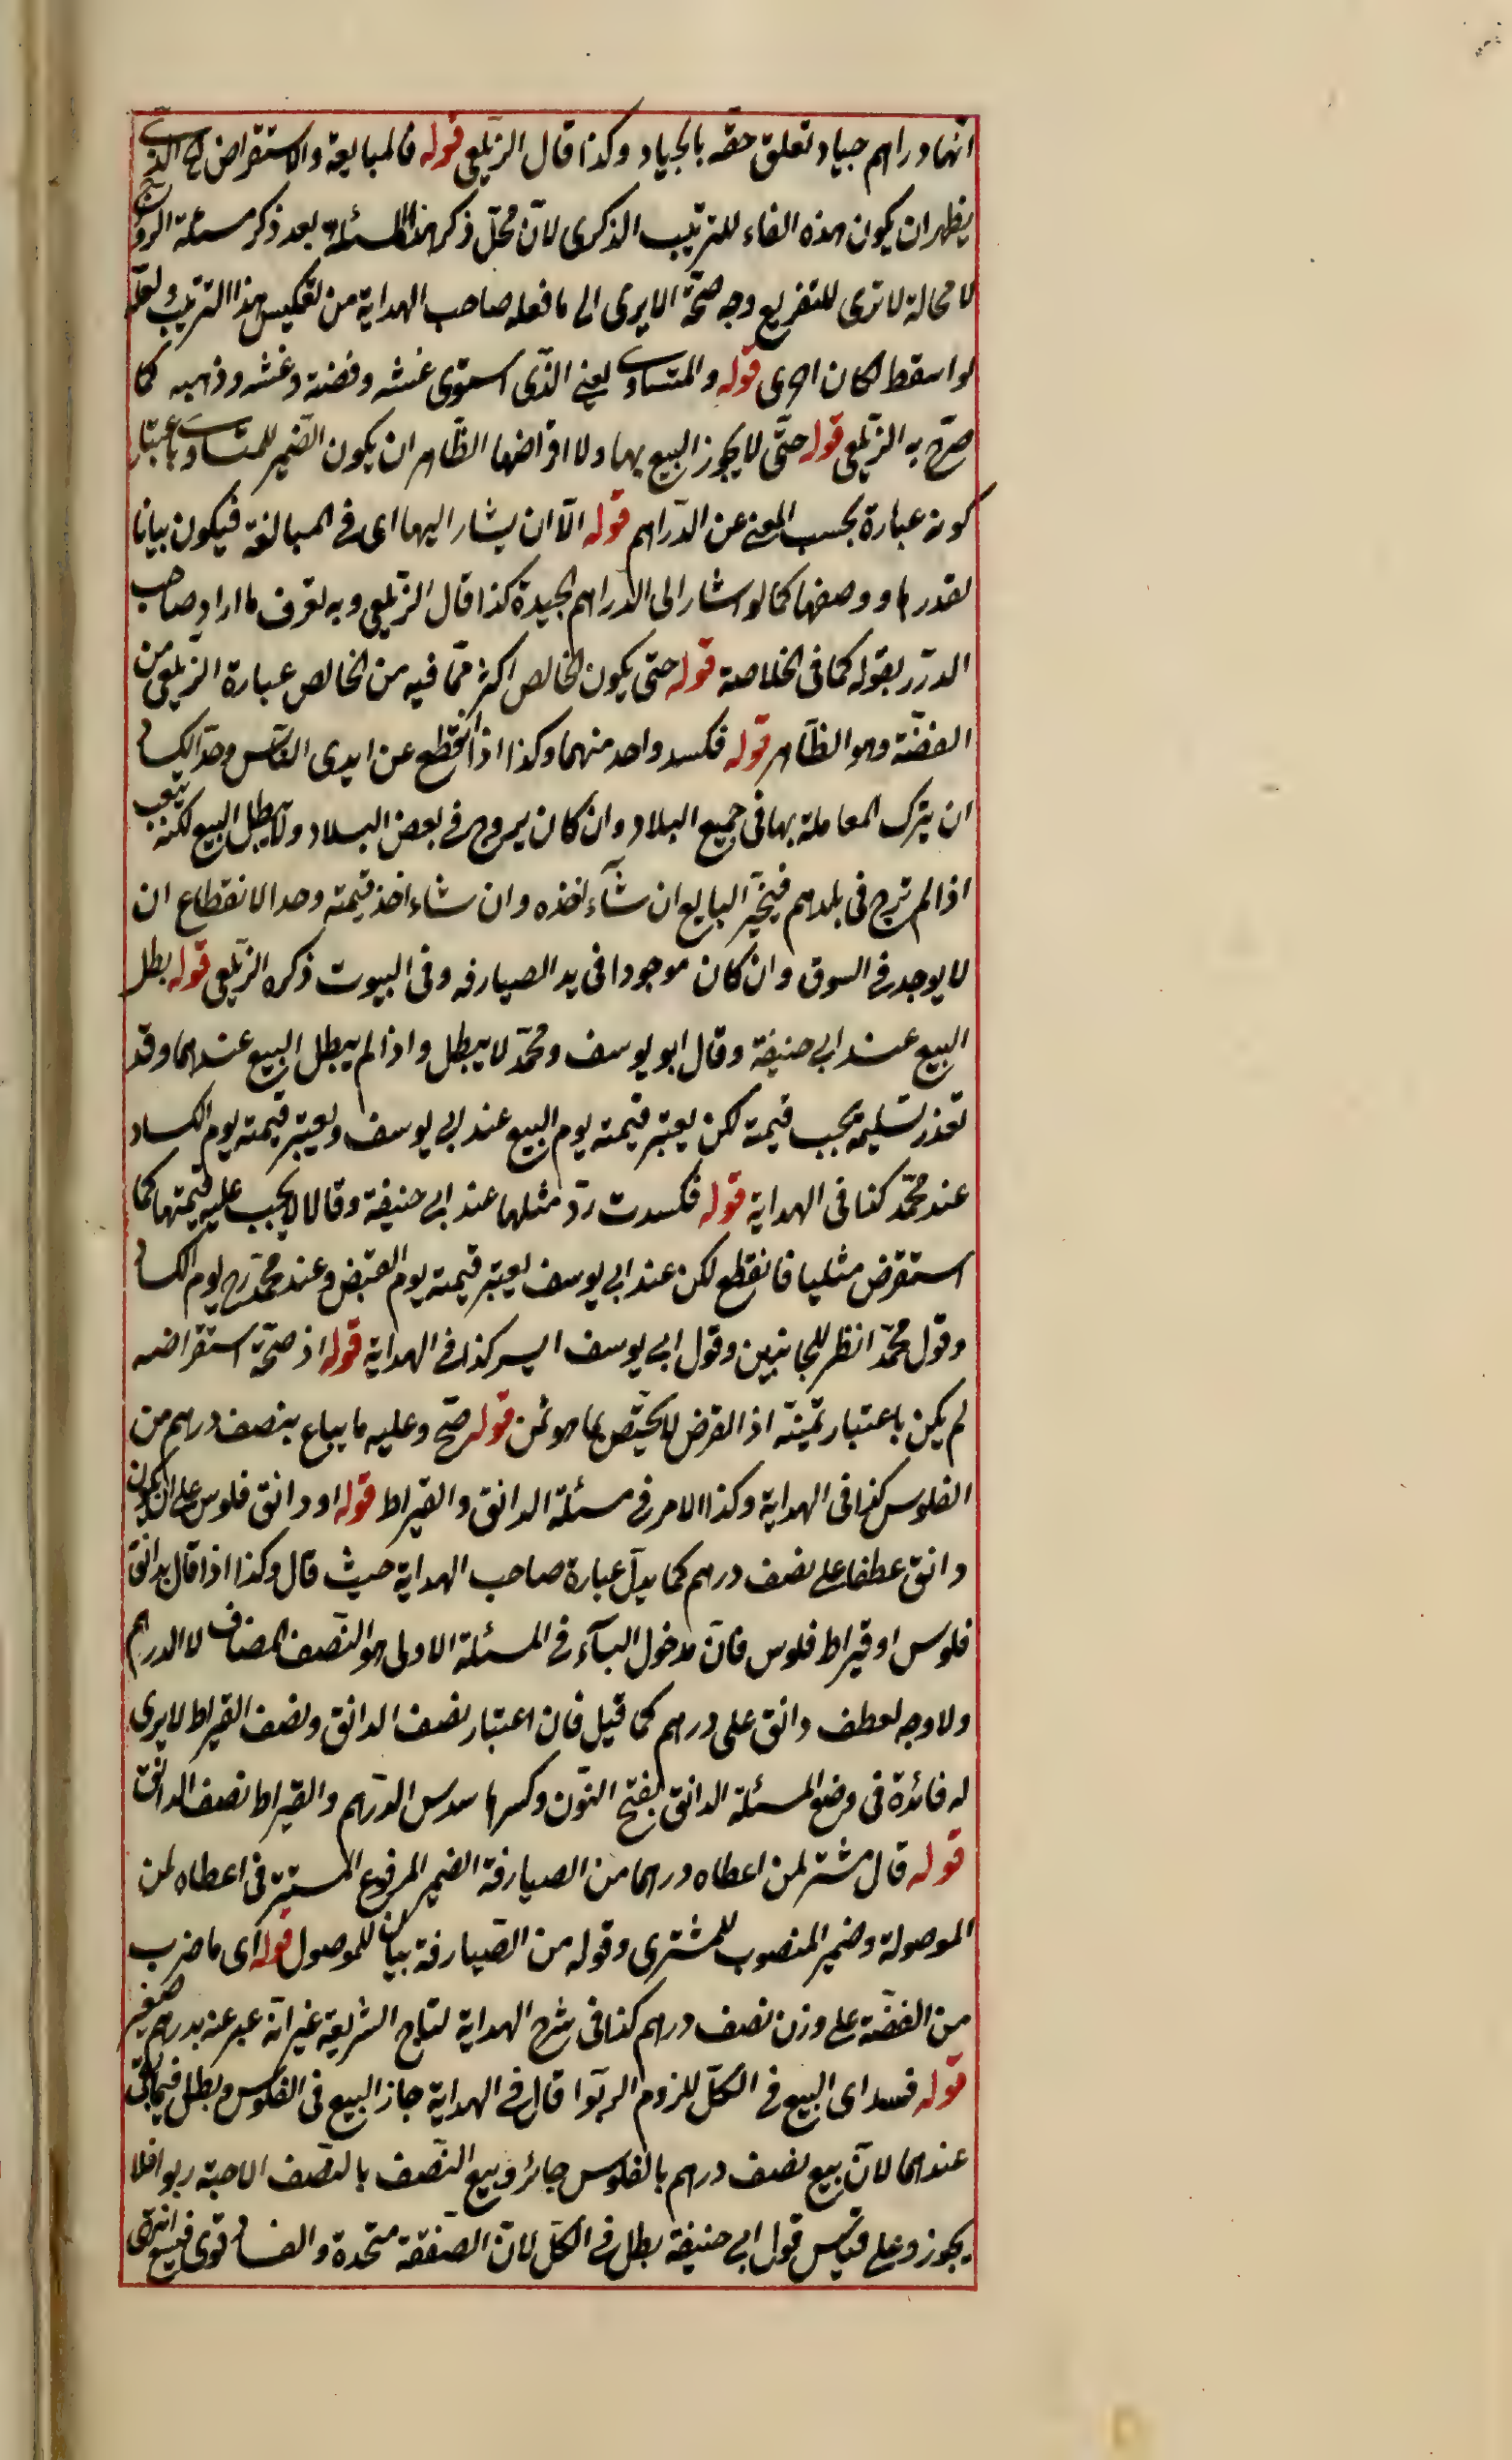 انها دراهم جياد تعلق حقه بالجياد وكذا قال الزيلعى قوله فالمبايعة والاستقراض الخ الذى
يظهر ان يكون هذه الفاء للترتيب الذكرى لان محل ذكر هذه المسئلة بعد ذكر مسئلة الروج
لا محالة لا ترى للتفريع وجه صحة الا يرى الى ما فعله صاحب الهداية من تعكيس هذا الترتيب ولعله
لو اسقط لكان احرى قوله والمتساوى يعنى الذى استوى غشه وفضته وغشه وذهبه كما
صرح به الزيلعى قوله حتى لا يجوز البيع بها ولا اقراضها الظاهر ان يكون الضمير للمتساوى باعتبار
كونه عبارة بحسب المعنى عن الدراهم قوله الا ان يشار اليها اى فى المبايعة فيكون بيانا
لقدرها ووصفها كما لو اشار الى الدراهم الجيدة كذا قال الزيلعى وبه تعرف ما اراد صاحب
الدرر بقوله كما فى الخلاصة قوله حتى يكون الخالص اكثر مما فيه من الخالص عبارة الزيلعى من
الفضة وهو الظاهر قوله فكسد واحد منهما وكذا اذا انقطع عن ايدى الناس وحد الكساد
ان يترك المعاملة بها فى جميع البلاد وان كان يروج فى بعض البلاد ولا يبطل البيع لكنه يتعيب
اذا لم ترج فى بلدهم فيخير البايع ان شآء اخذه وان شاء اخذ قيمته وحد الانقطاع ان
لا يوجد فى السوق وان كان موجودا فى يد الصيارفه وفى البيوت ذكره الزيلعى قوله بطل
البيع عند ابى حنيفة وقال ابو يوسف ومحمد لا يبطل واذا لم يبطل البيع عندهما وقد
تعذر تسليمه يجب قيمته لكن يعتبر قيمته يوم البيع عند ابى يوسف ويعتبر قيمته يوم الكساد
عند محمد كذا فى الهداية قوله فكسدت رد مثلها عند ابى حنيفة وقالا يجب عليه قيمتها كما
استقرض مثليا فانقطع لكن عند ابى يوسف يعتبر قيمته يوم القبض وعند محمد رح يوم الكساد
وقول محمد انظر للجانبين وقول ابى يوسف ايسر كذا فى الهداية قوله اذ صحة استقراضه
لم يكن باعتبار ثمنيته اذ القرض لا يختص بما هو ثمن قوله صح وعليه ما يباع بنصف درهم من
الفلوس كذا فى الهداية وكذا الامر فى مسئلة الدانق والقيراط قوله او دانق فلوس على ان يكون
دانق عطفا على نصف درهم كما يدل عبارة صاحب الهداية حيث قال وكذا اذا قال بدانق
فلوس او قيراط فلوس فان مدخول البآء فى المسئلة الاولى هو النصف المضاف لا الدرهم
ولا وجه لعطف دانق على درهم كما قيل فان اعتبار نصف الدانق ونصف القيراط لا يرى
له فائدة فى وضع المسئلة الدانق بفتح النون وكسرها سدس الدرهم والقيراط نصف الدانق
قوله قال مشتر لمن اعطاه درهما من الصيارفة الضمير المرفوع المستتر فى اعطاه لمن
الموصولة وضمير المنصوب للمشترى وقوله من الصيارفة بيان للموصول قوله اى ما ضرب
من الفضة على وزن نصف درهم كذا فى شرح الهداية لتاج الشريعة غير انه عبر عنه بدرهم صغير
قوله فسد اى البيع فى الكل للزوم الربوا قال فى الهداية جاز البيع فى الفلوس وبطل فيما بقى
عندهما لان بيع نصف درهم بالفلوس جائز وبيع النصف بالنصف الا حبة ربوا فلا
يجوز وعلى قياس قول ابى حنيفة بطل فى الكل لان الصفقة متحدة والفساد قوى فيشيع انتهى